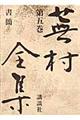 蕪村全集
第五巻
書簡
講談社